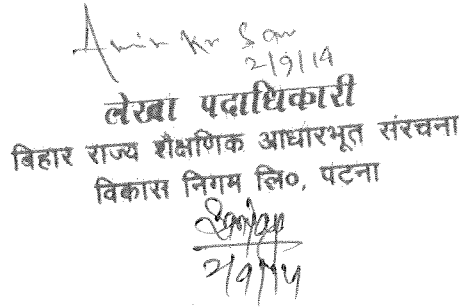 2/9/14
लेखा पदाधिकारी
बिहार राज्य शैक्षणिक आधारभूत संरचना
विकास निगम लि०, पटना
2/9/14